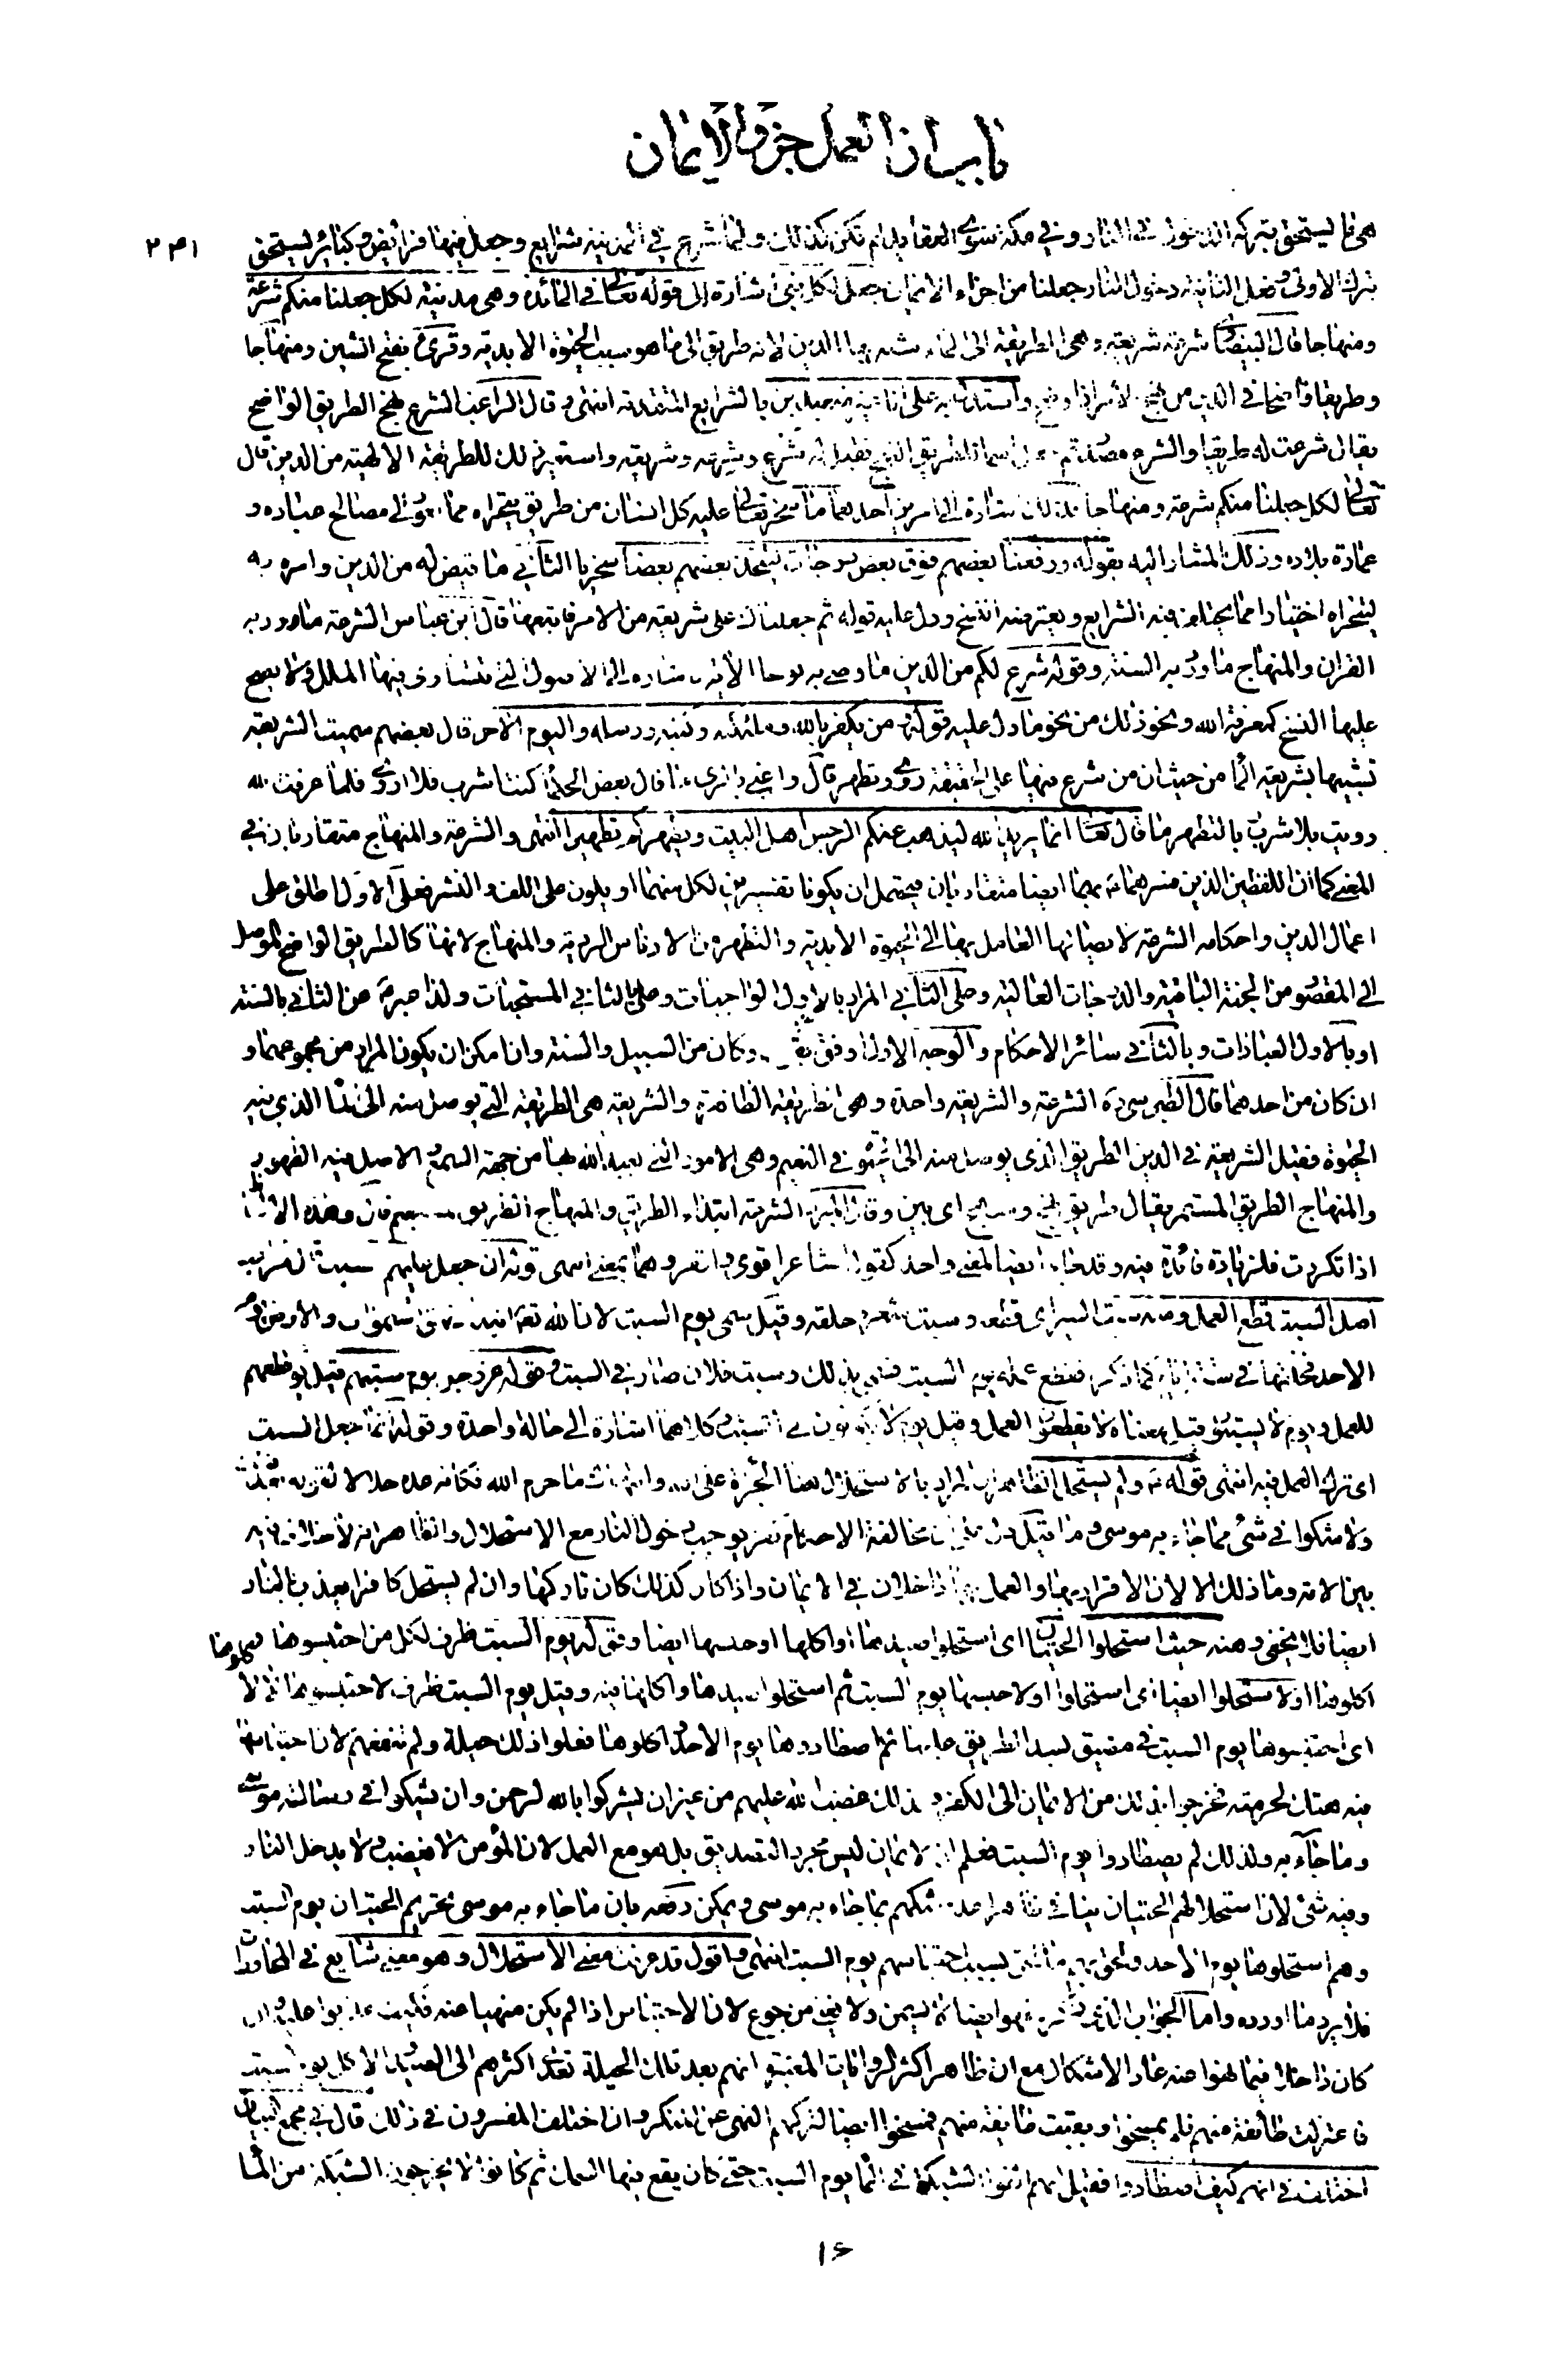 باب ان العمل جزء الايمان
٢٣١
هي ما يستحق بتركه الدخول في النار وفي مكة سوى العقايد لم تكن كذلك ولما شرع في المدينة شرايع وجعل فيها فرائض وكبائر يستحق
بترك الاولى وفعل الثانية دخول النار جعلنا من اجزاء الايمان جعل لكل نبي اشارة الى قوله تعالى في المائدة وهي مدنية لكل جعلنا منكم شرعة
ومنهاجا قال البيضاوي شرعة شريعة وهي الطريقة الى الماء شبه بها الدين لانه طريق الى ما هو سبب الحيوة الابدية وقرئ بفتح الشين ومنهاجا
وطريقا واضحا في الدين من نهج الامر اذا وضح واستدل به على انا غير متعبدين بالشرايع المتقدمة انتهى وقال الراغب الشرع نهج الطريق الواضح
يقال شرعت له طريقا والشرع مصدر ثم جعل اسما للطريق النهج فقيل له شرع وشرعة وشريعة واستعير ذلك للطريقة الالهية من الدين قال
تعالى لكل جعلنا منكم شرعة ومنهاجا فذلك اشارة الى امرين احدهما ما سخر تعالى عليه كل انسان من طريق يتحراه مما يعود الى مصالح عباده و
عمارة بلاده وذلك المشار اليه بقوله ورفعنا بعضهم فوق بعض درجات ليتخذ بعضهم بعضا سخريا الثاني ما قيض له من الدين وامره به
ليتحراه اختيارا مما يختلف فيه الشرايع ويعترضه النسخ ودل عليه قوله ثم جعلناك على شريعة من الامر فاتبعها قال ابن عباس الشرعة ما ورد به
القران والمنهاج ما ورد به السنة وقوله شرع لكم من الدين ما وصى به نوحا الاية اشارة الى الاصول التي تتساوى فيها الملل ولا يصح
عليها النسخ كمعرفة الله ونحو ذلك من نحو ما دل عليه قوله ومن يكفر بالله وملائكته وكتبه ورسله واليوم الاخر قال بعضهم سميت الشريعة
تشبيها بشريعة الماء من حيث ان من شرع فيها على الحقيقة روى وتطهر قال واعني بالري ما قال بعض الحكماء كنت اشرب فلا اروى فلما عرفت الله
رويت بلا شرب وبالتطهر ما قال تعالى انما يريد الله ليذهب عنكم الرجس اهل البيت ويطهركم تطهيرا انتهى والشرعة والمنهاج متقاربان في
المعنى كما ان اللفظين الذين فسرهما بهما ايضا متقاربان فيحتمل ان يكونا تفسيرين لكل منهما او يكون على اللف والنشر فعلى الاول اطلق على
اعمال الدين واحكامه الشرعة لايصالها العامل بها الى الحيوة الابدية والتطهر من الادناس الردية والمنهاج لانها كالطريق الواضح الموصل
الى المقصود من الجنة الباقية والدرجات العالية وعلى الثاني المراد بالاول الواجبات وبالثاني المستحبات ولذا عبر عن الثاني بالسنة
او بالاول العبادات وبالثاني سائر الاحكام والوجه الاول اوفق وكان من السبيل والسنة وان امكن ان يكون المراد من مجموعهما و
ان كان من احدهما قال الطبرسي ره الشرعة والشريعة واحدة وهي الطريقة الظاهرة والشريعة هي الطريقة التي يوصل منه الى الماء الذي فيه
الحيوة فقيل الشريعة في الدين الطريق الذي يوصل منه الى الحيوة في النعيم وهي الامور التي تعبد الله بها من جهة السمع والاصل فيه الظهور
والمنهاج الطريق المستمر يقال طريق نهج ومنهج اي بين وقال المبرد الشرعة ابتداء الطريق والمنهاج الطريق المستقيم قال وهذه الالفاظ
اذا تكررت فلزيادة فائدة فيه وقد جاء ايضا المعنى واحد كقول الشاعر اقوى واقفر وهما بمعنى انتهى قوله ان جعل عليهم السبت قال الراغب
اصل السبت قطع العمل ومنه سبت السير اي قطعه وسبت شعره حلقه وقيل سمي يوم السبت لان الله تعالى ابتدأ بخلق السموات والارض يوم
الاحد فخلقها في ستة ايام كما ذكره فقطع عمله يوم السبت فسمي بذلك وسبت فلان صار في السبت وقوله عز وجل يوم سبتهم قيل يوم قطعهم
للعمل ويوم لا يسبتون قيل معناه لا يقطعون العمل وقيل يوم لا يكونون في السبت وكلاهما اشارة الى حالة واحدة وقوله انما جعل السبت
اي ترك العمل فيه انتهى قوله ولم يستحل الظاهر ان المراد بالاستحلال هنا الجرأة على الله وانتهاك ما حرم الله فكانه عده حلالا لقرينة
ولا شكوا في شئ مما جاء به موسى وما قيل مخالفة الاحكام يوجب دخول النار مع الاستحلال والظاهر انه لا خلاف فيه
بين الامة وما ذلك الا لان الاقرار بها والعمل بها داخلان في الايمان واذا كان كذلك كان تاركها وان لم يستحل كافرا يعذب بالنار
ايضا فلا يخفى وهنه حيث استحلوا الحيتان اي استحلوا صيدها او اكلها او حبسها ايضا وقوله يوم السبت ظرف لكل من احتبسوها واكلوها
اكلوها او لاستحلوا ايضا اي استحلوا اولا حبسها يوم السبت ثم استحلوا صيدها واكلها فيه وقيل يوم السبت ظرف لاحتبسوها لا
اي احتبسوها يوم السبت في مضيق لسد الطريق عليها ثم اصطادوها يوم الاحد واكلوها فعلوا ذلك حيلة ولم تنفعهم لان حبسها
فيه هتك لحرمته فخرجوا بذلك من الايمان الى الكفر ولذلك غضب الله عليهم من غير ان يشركوا بالله الرحمن وان شكوا في رسالة موسى
وما جاء به ولذلك لم يصطادوا يوم السبت فعلم ان الايمان ليس مجرد التصديق بل هو مع العمل لان المؤمن لا يغضب ولا يدخل النار
وفيه شئ لان استحلالهم الحيتان ينافي عدم شكهم بما جاء به موسى ويمكن دفعه بان ما جاء به موسى تحريم الحيتان يوم السبت
وهم استحلوها يوم الاحد بسبب احتباسهم يوم السبت انتهى واقول قد عرفت معنى الاستحلال وهو معنى شايع في المحاورات
فلا يرد ما اورده واما الجواب الذي ذكره فهو ايضا لا يسمن ولا يغني من جوع لان الاحتباس اذا لم يكن منهيا عنه فكيف عذبوا عليه وان
كان داخلا فيما نهوا عنه عاد الاشكال مع ان ظاهر اكثر الروايات المعتبرة انهم بعد تلك الحيلة تعدى اكثرهم الى الصيد والاكل يوم السبت
فاعتزلت طائفة منهم فلم يمسخوا وبقيت طائفة منهم فمسخوا ايضا لتركهم النهي عن المنكر وان اختلف المفسرون في ذلك قال في مجمع البيان
اختلف في انهم كيف اصطادوا فقيل انهم القوا الشبكة في الماء يوم السبت حتى كان يقع فيها السمك ثم كانوا لا يخرجون الشبكة من الماء
١۶